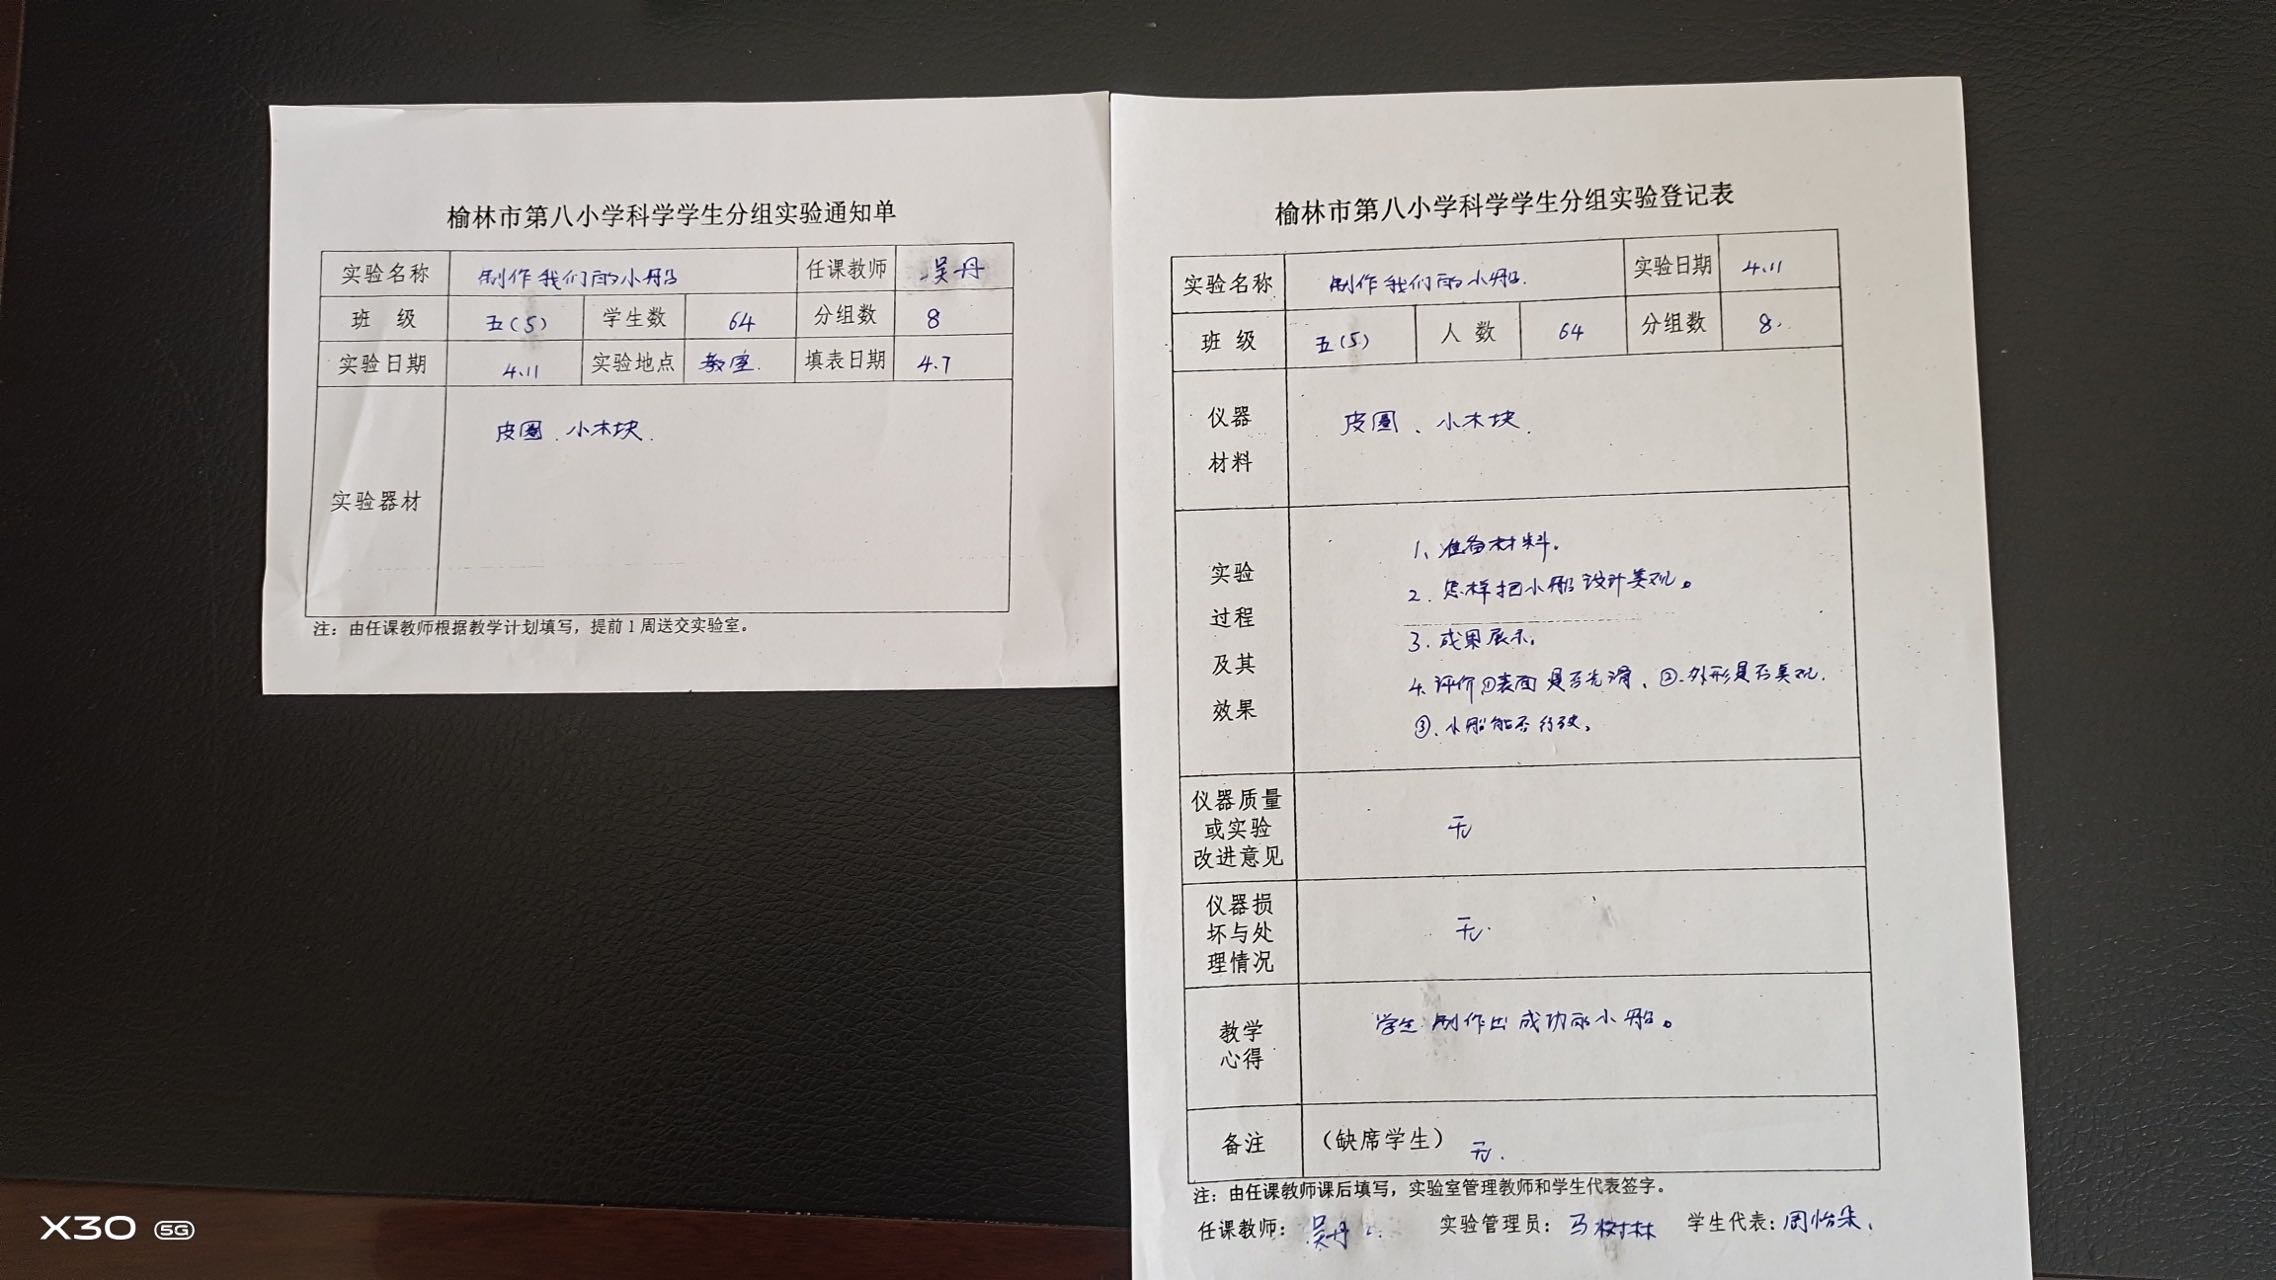 榆林市第八小学科学学生分组实验通知单
实验名称 制作我们的小船 任课教师 吴丹
班 级 五(5) 学生数 64 分组数 8
实验日期 4.11 实验地点 教室. 填表日期 4.7
实验器材 皮圈、小木块.
注：由任课教师根据教学计划填写，提前1周送交实验室。
榆林市第八小学科学学生分组实验登记表
实验名称 制作我们的小船. 实验日期 4.11
班 级 五(5) 人 数 64 分组数 8.
仪器
材料
皮圈、小木块.
实验
过程
及其
效果
1、准备材料。
2. 怎样把小船设计美观。
3. 成果展示。
4. 评价①表面是否光滑、②.外形是否美观.
③.小船能否行驶。
仪器质量
或实验
改进意见
无
仪器损
坏与处
理情况
无.
教学
心得
学生制作出成功的小船。
备注 （缺席学生） 无.
注：由任课教师课后填写，实验室管理教师和学生代表签字。
任课教师：吴丹 实验管理员：马树林 学生代表：周怡朵
X30 5G